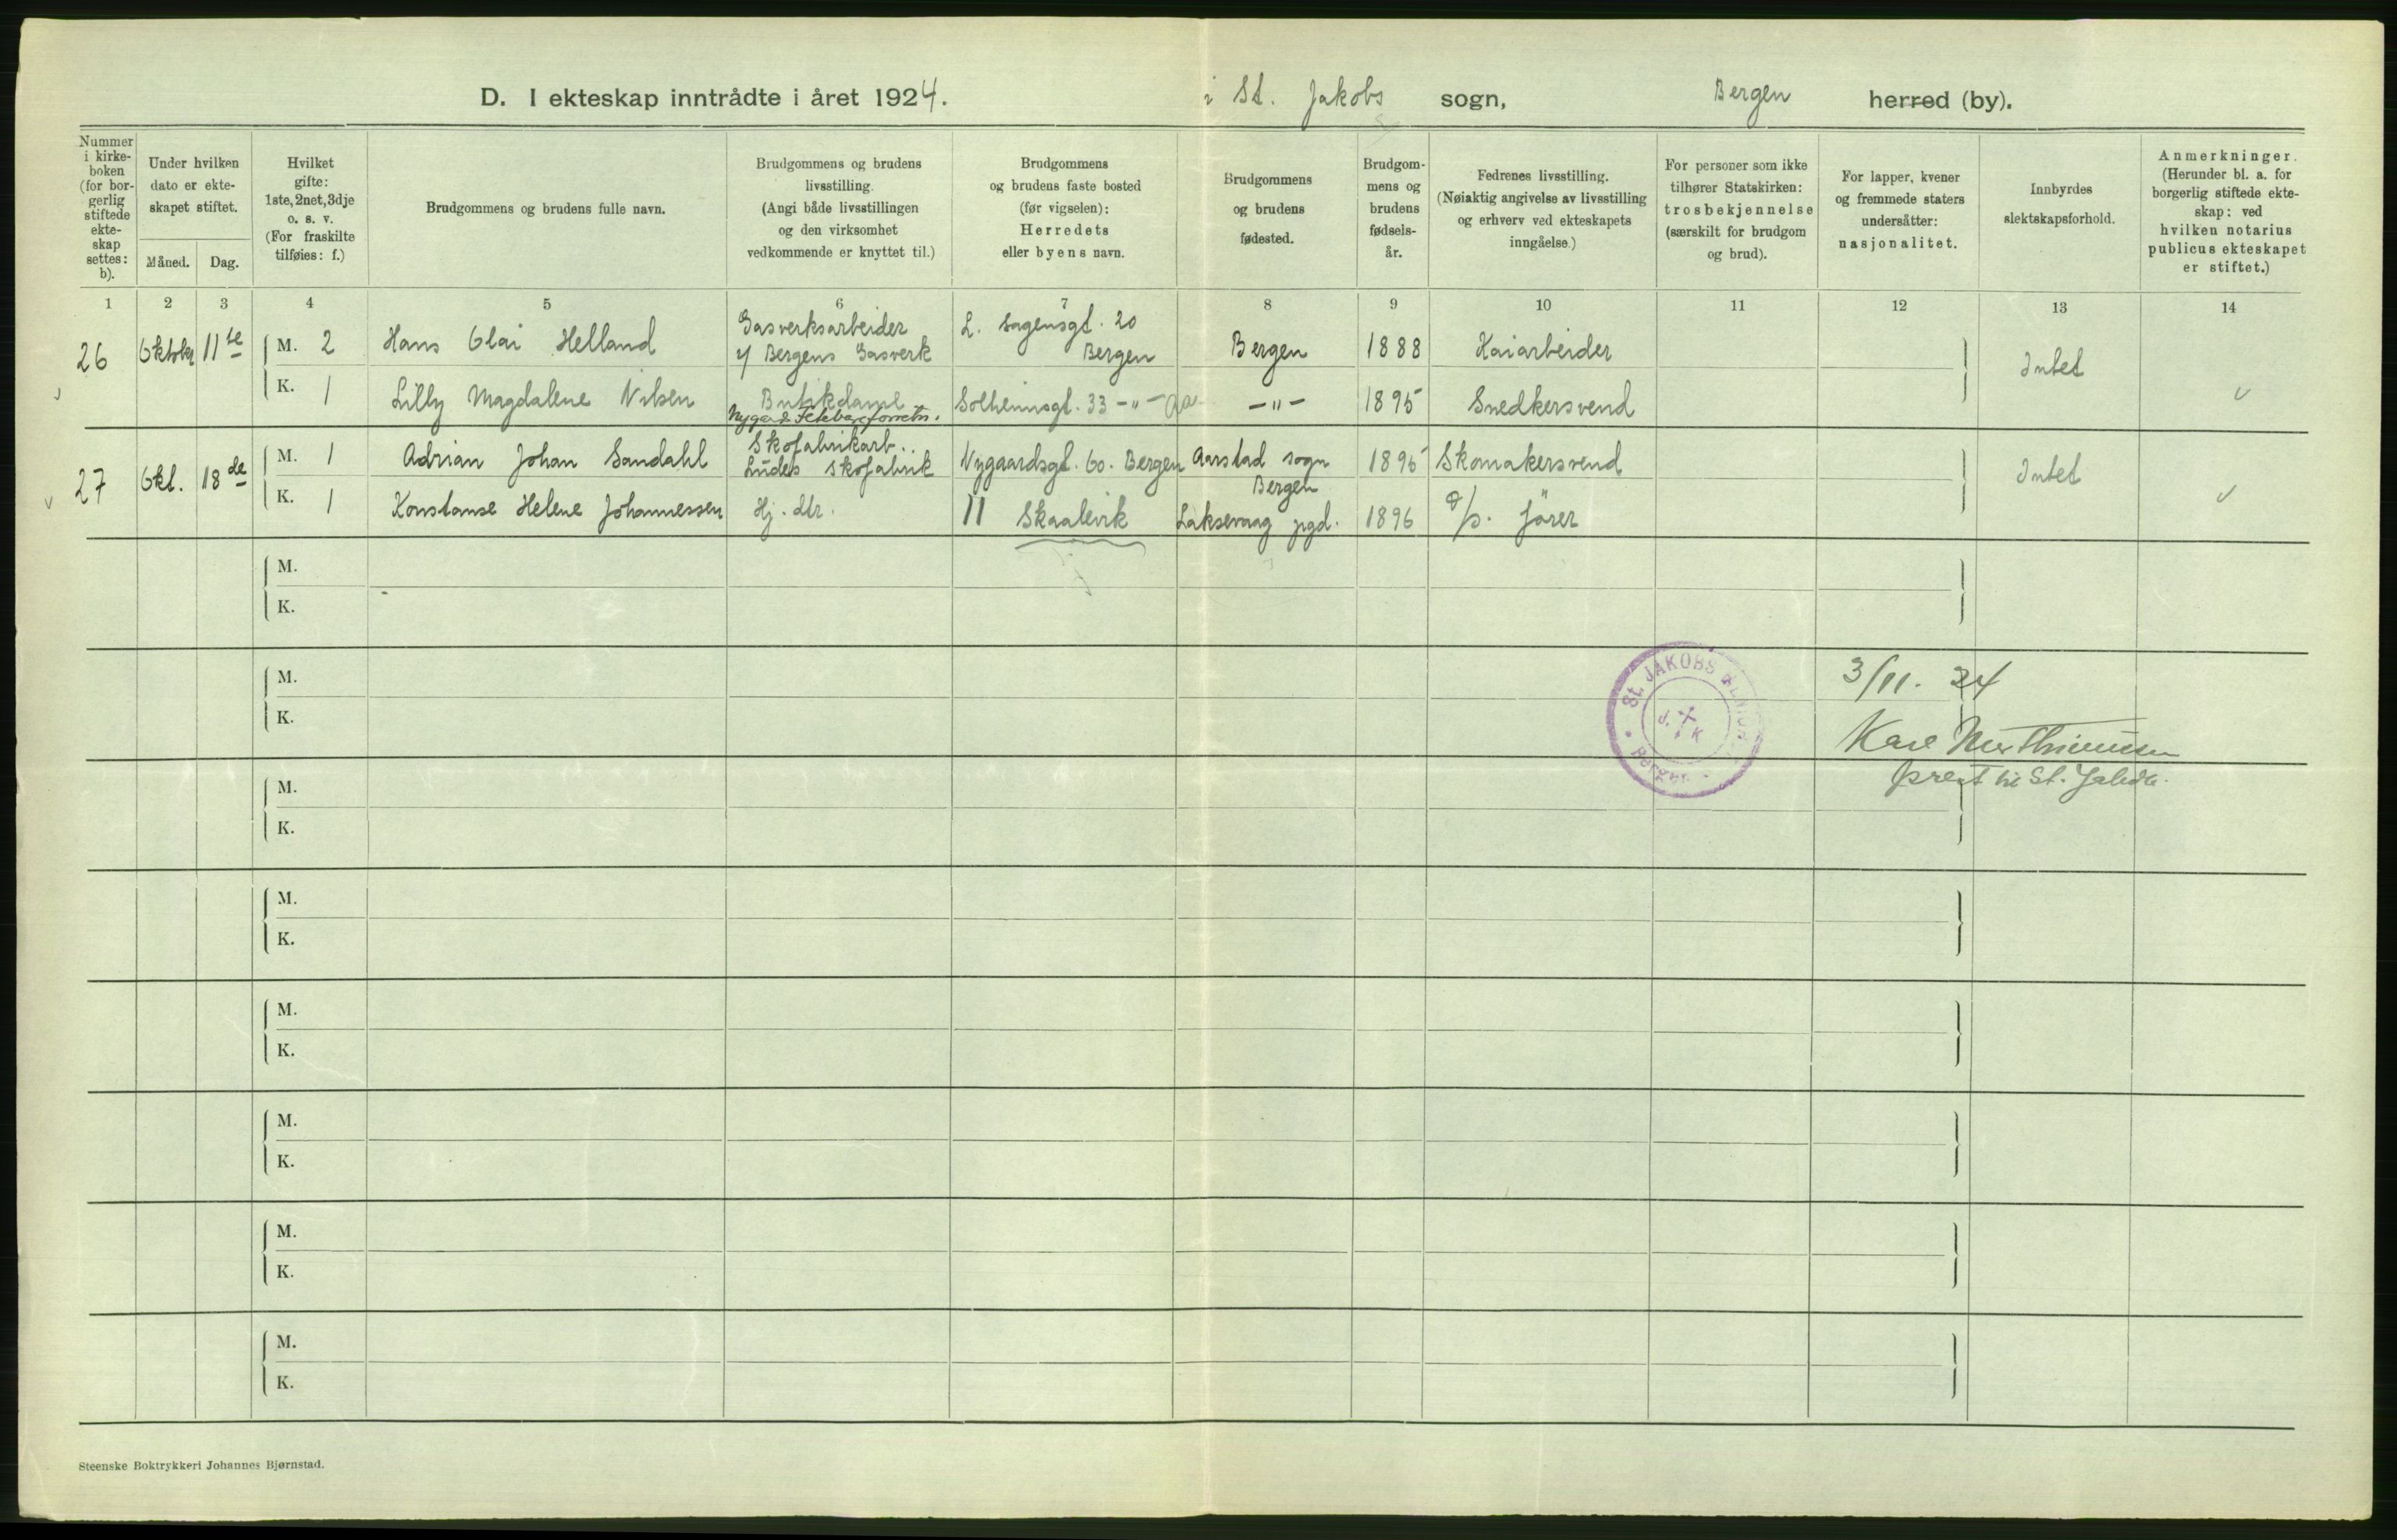 D. I ekteskap inntrådte i året 1924.
i St. Jakobs sogn, Bergen herred (by).
Nummer i kirke-boken (for bor-gerlig stiftede ekte-skap settes: b).
Under hvilken dato er ekte-skapet stiftet.
Måned. Dag.
Hvilket gifte: 1ste, 2net, 3dje o. s. v. (For fraskilte tilføies: f.)
Brudgommens og brudens fulle navn.
Brudgommens og brudens livsstilling. (Angi både livsstillingen og den virksomhet vedkommende er knyttet til.)
Brudgommens og brudens faste bosted (før vigselen): Herredets eller byens navn.
Brudgommens og brudens fødested.
Brudgom-mens og brudens fødsels-år.
Fedrenes livsstilling. (Nøiaktig angivelse av livsstilling og erhverv ved ekteskapets inngåelse.)
For personer som ikke tilhører Statskirken: trosbekjennelse (særskilt for brudgom og brud).
For lapper, kvener og fremmede staters undersåtter: nasjonalitet.
Innbyrdes slektskapsforhold.
Anmerkninger. (Herunder bl. a. for borgerlig stiftede ekte-skap: ved hvilken notarius publicus ekteskapet er stiftet.)
1 2 3 4 5 6 7 8 9 10 11 12 13 14
26 Oktober 11te M. 2 Hans Olai Helland Gasverksarbeider v/ Bergens Gasverk L. Sagensgt. 20 Bergen Bergen 1888 Kaiarbeider Intet
K. 1 Lilly Magdalene Nilsen Butikdame Solheimsgt. 33 -"- -"- 1895 Snedkersvend
27 Okt. 18de M. 1 Adrian Johan Sandahl Skofabrikarb. Skofabrik Nygaardsgt. 60. Bergen Aarstad sogn Bergen 1895 Skomakersvend Intet
K. 1 Konstanse Helene Johannessen Hj. dtr. Skaalevik Laksevaag pgd. 1896 förer
M.
K.
M.
K.
St. JAKOBS
Bergen
3/11. 24
prest til St. Jakob
M.
K.
M.
K.
M.
K.
M.
K.
M.
K.
M.
K.
Steenske Boktrykkeri Johannes Bjørnstad.